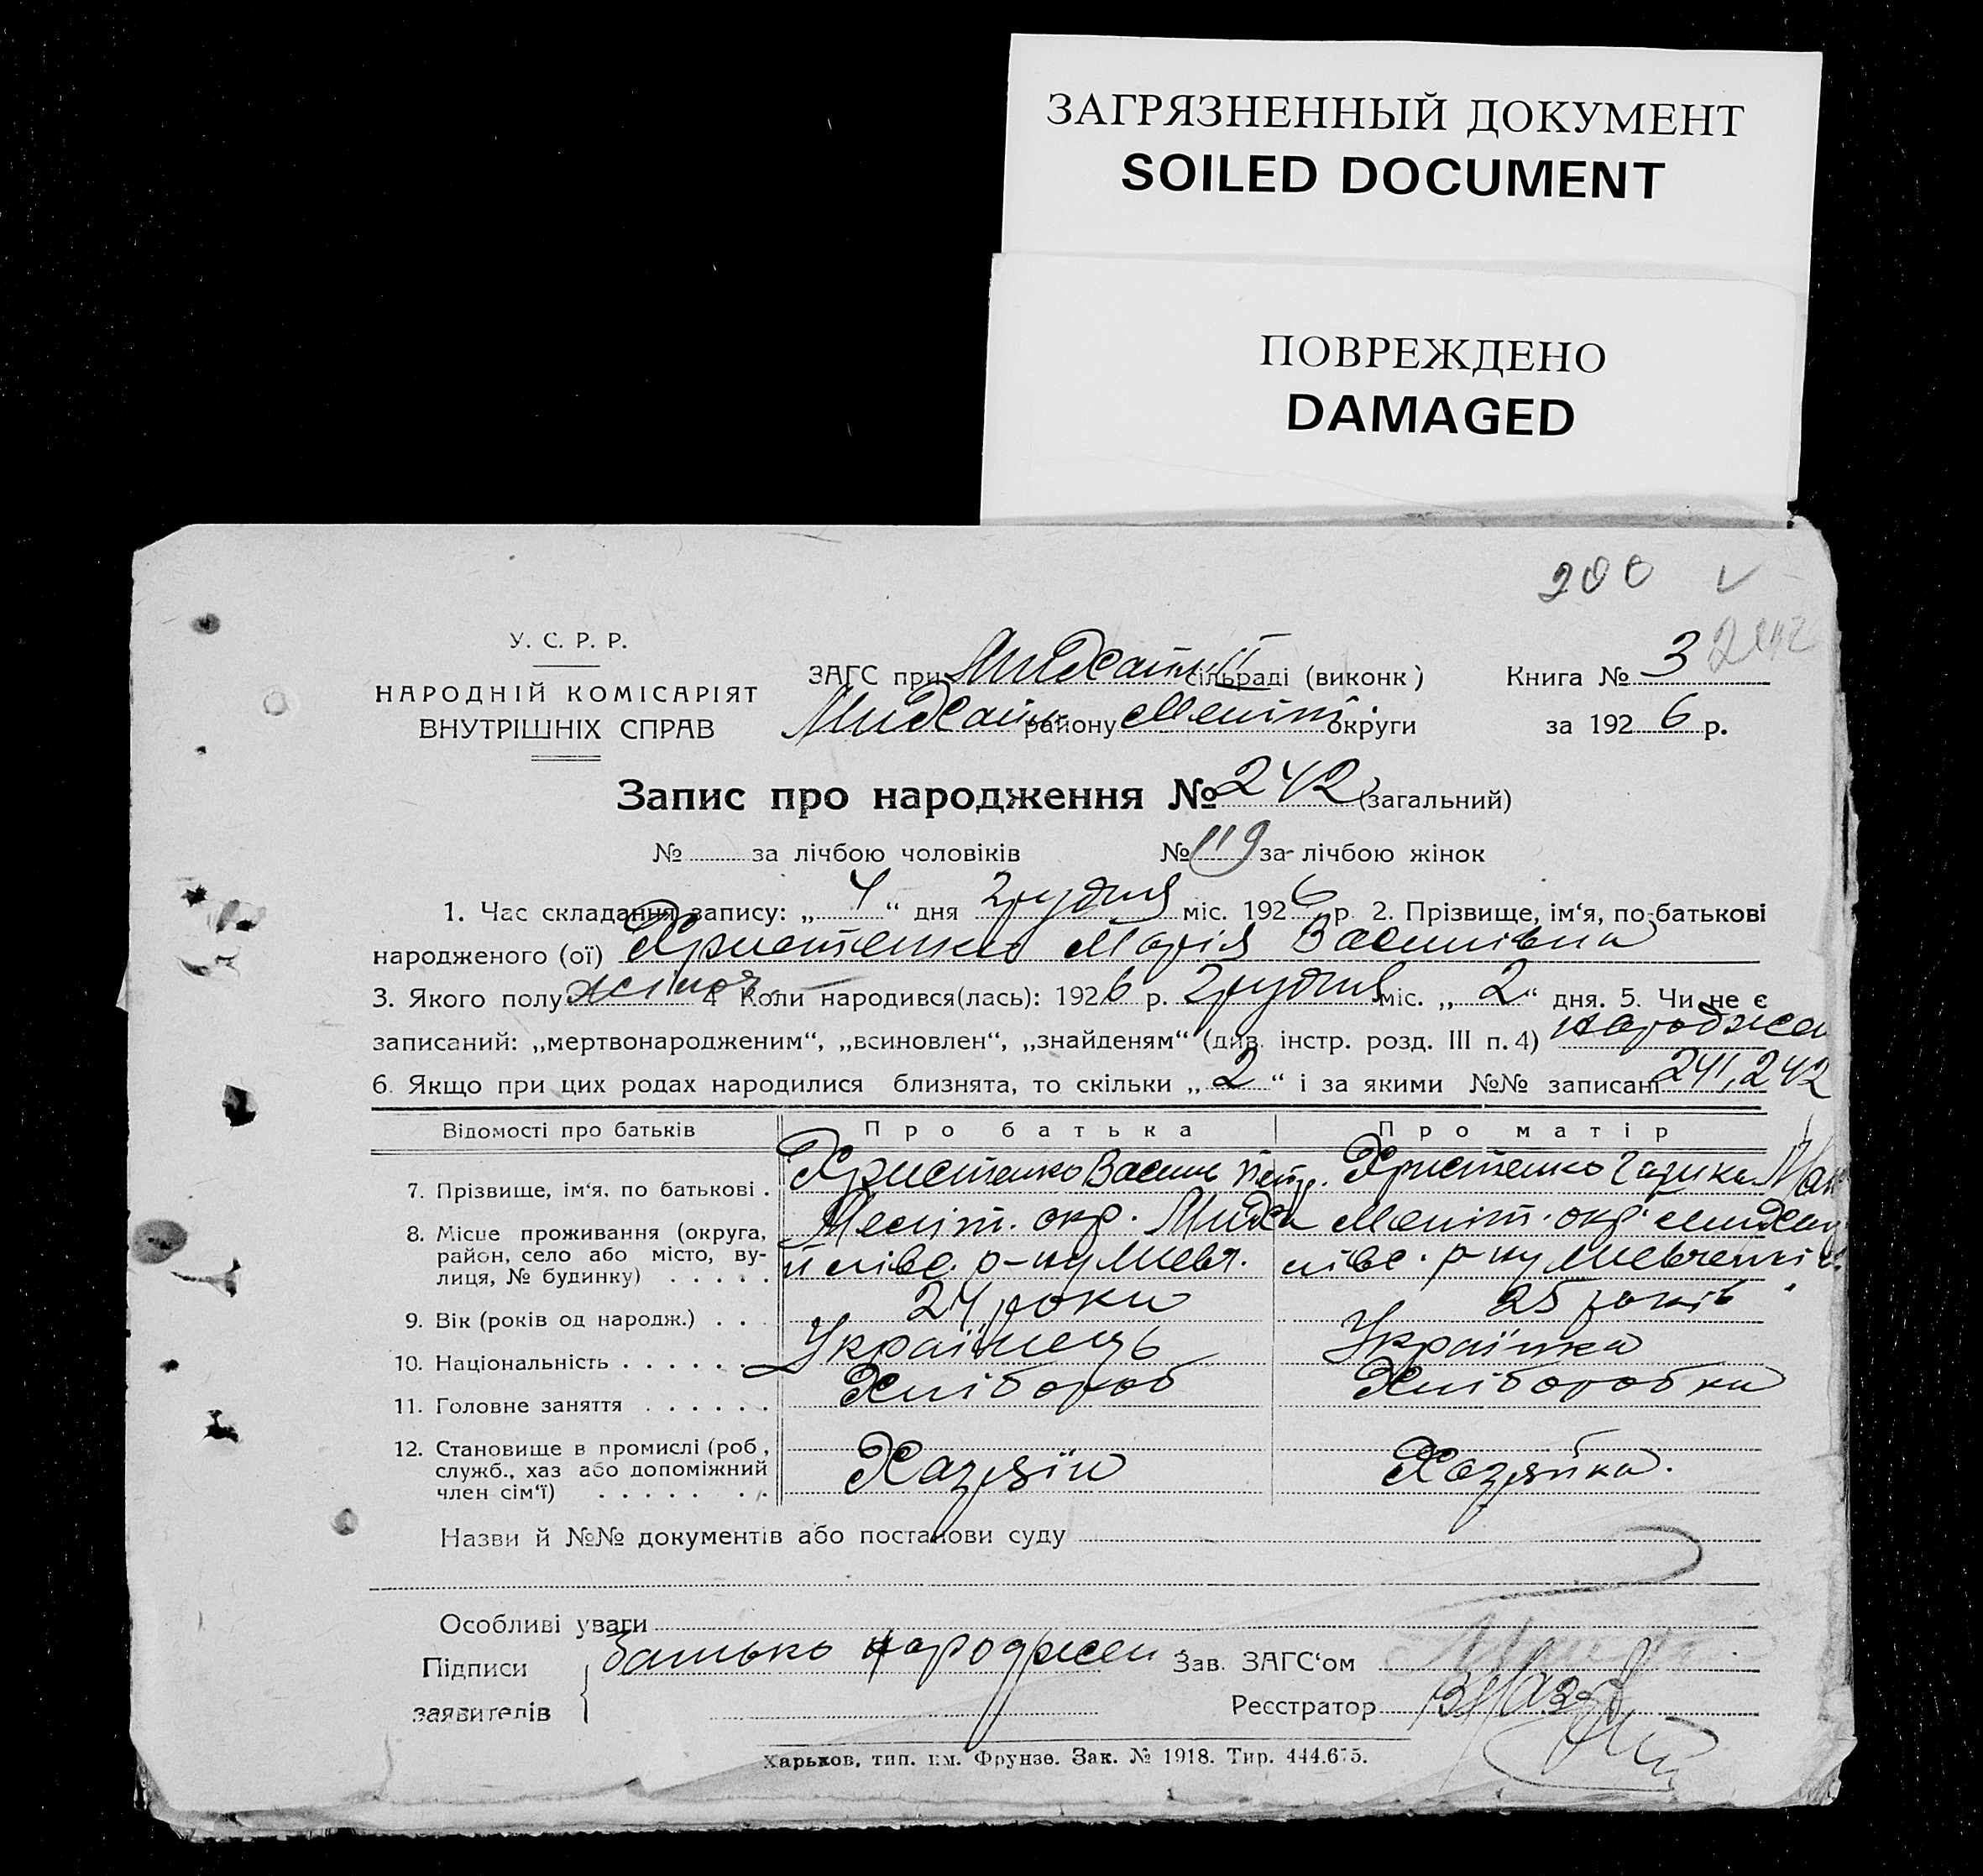 ЗАГРЯЗНЕННЫЙ ДОКУМЕНТ
SOILED DOCUMENT
ПОВРЕЖДЕНО
DAMAGED
200 V
У. С. Р. Р.
НАРОДНІЙ КОМІСАРІЯТ
ВНУТРІШНІХ СПРАВ
ЗАГС при сільраді (виконк)
району Меліт. округи
Книга № 3 242
за 1926 р.
Запис про народження № 242 (загальний)
№ за лічбою чоловіків № 119 за лічбою жінок
1. Час складання запису: „ 4 “ дня Грудня міс. 1926 р. 2. Прізвище, ім‘я, по-батькові
народженого (ої) Христенко Марія Василівна
3. Якого полу жіноч. 4 Коли народився(лась): 1926 р. Грудня міс. „ 2 “ дня. 5. Чи не є
записаний: „мертвонародженим“, „всиновлен“, „знайденям“ (див. інстр. розд. III п. 4) народжен
6. Якщо при цих родах народилися близнята, то скільки „ 2 “ і за якими №№ записані 241, 242
Відомості про батьків Про батька Про матір
7. Прізвище, ім‘я, по батькові . Христенко Василь Петр. Христенко
8. Місце проживання (округа, Меліт. окр. Меліт. окр.
район, село або місто, ву- р-ну р-ну
лиця, № будинку) . . . . .
9. Вік (років од народж.) . . . 24 роки 25 років
10. Національність . . . . . . Українець Українка
11. Головне заняття . . . . . . Хлібороб Хліборобка
12. Становище в промислі (роб., Хазяїн Хазяйка.
служб., хаз або допоміжний
член сім‘ї) . . . . . . .
Назви й №№ документів або постанови суду
Особливі уваги
Підписи заявителів батько народжен
Зав. ЗАГС‘ом
Реєстратор
Харьков, тип. им. Фрунзе. Зак. № 1918. Тир. 444.675.